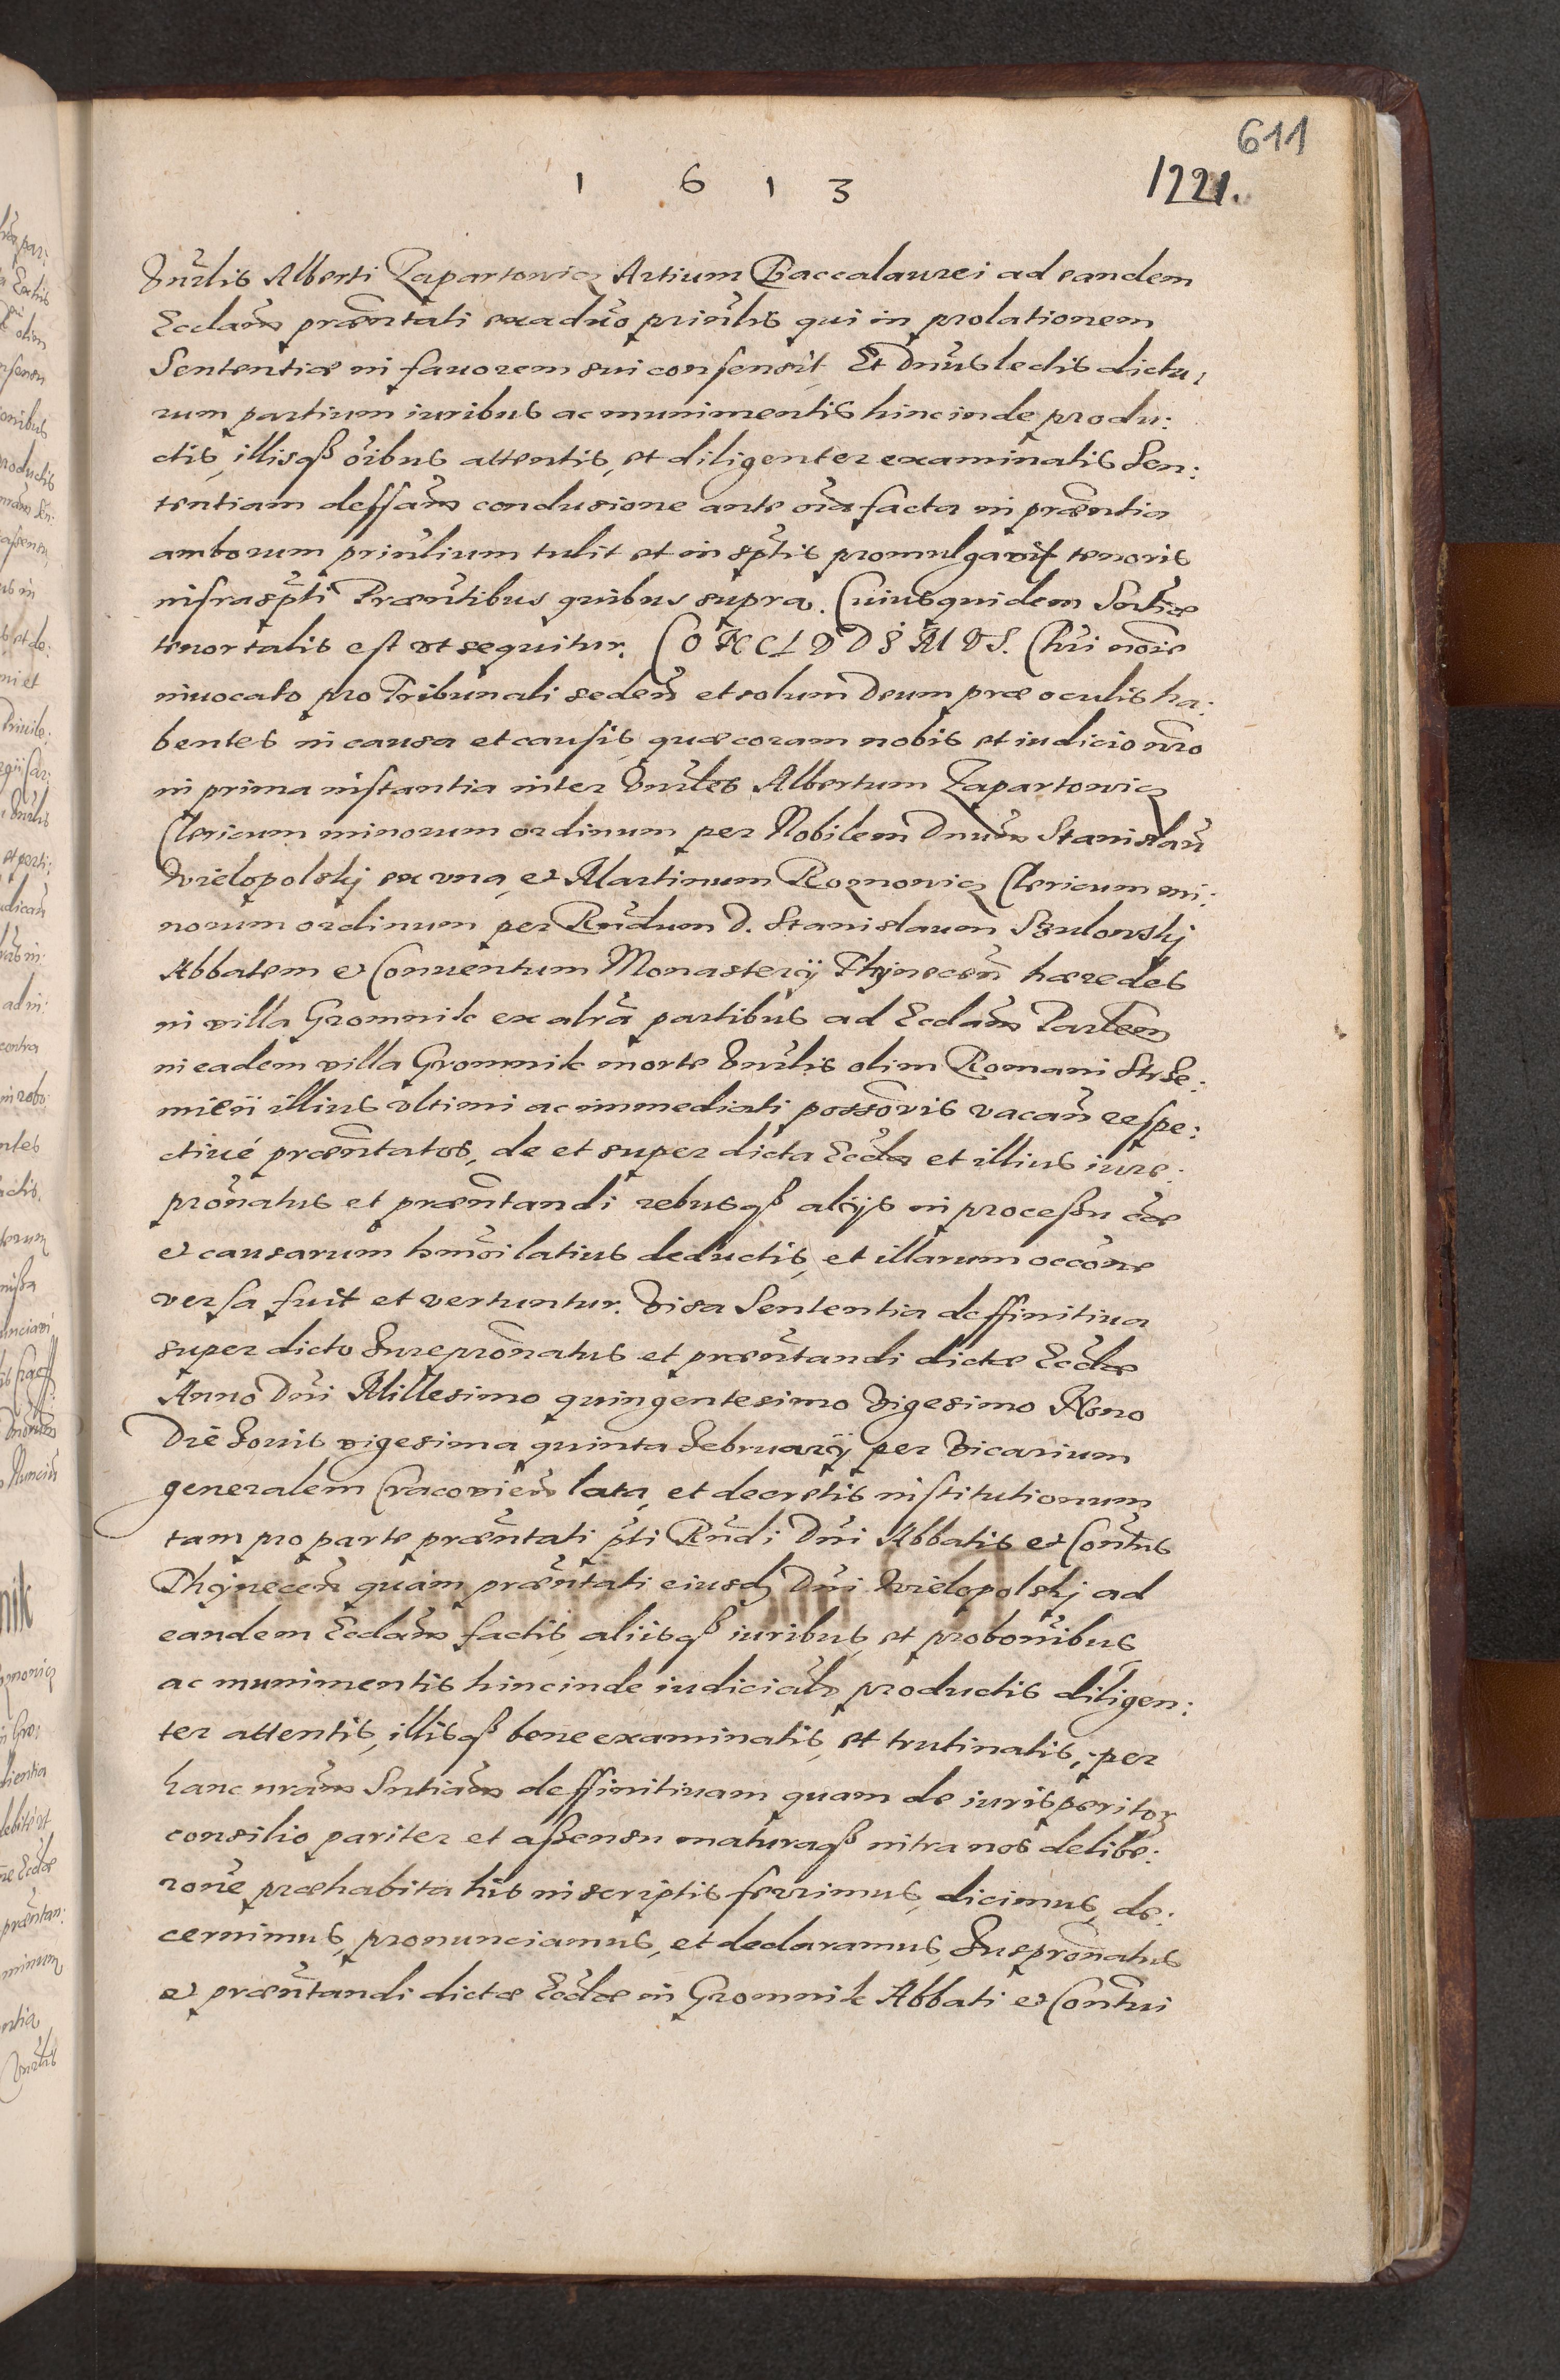 611
1 6 1 3
1221.
Vnrlis Alberti Zapartowicz Artium Baccalaurei ad eandem
Ecclam præntati ex aduo priñlis qui in prolationem
Sententiæ in fauorem sui consensit, Et Dnus lectis dicta:
rum partium iuribus ac munimentis hincinde produ:
ctis, illisqß oibus attentis, et diligenter examinatis Sen:
tentiam deffam conclusione ante oia facta in præntia
amborum priñlium tulit et in sptis promulgauit tenoris
infrasspti Præntibus quibus supra. Cuiusquidem Sntiæ
tenor talis est vt sequitur. CONCLVDIMVS. Chri noie
inuocato pro Tribunali seden et solum Deum præ oculis ha:
bentes in causa et causis, quæ coram nobis et iudicio nro
in prima instantia inter Vnrles Albertum Zapartowicz
Clericum minorum ordinum per Nobilem Dnum Stanislau
Wielopolskj ex vna, et Martinum Roznowicz Clericum mi:
norum ordinum per Rndum D. Stanislaum Szulowskj
Abbatem et Conuentum Monasterij Thynecen hæredes
in villa Gromnik ex alra partibus ad Ecclam Parlem
in eadem villa Gromnik morte Vnrlis olim Romani Strze:
mień illius vltimi ac immediati possoris vacan respe:
ctiué præntatos, de et super dicta Eccla et illius iure:
pronatus et præntandi rebusqß alijs in processu cæ
et causarum hmoi latius deductis, et illarum occone
versa fuit et vertuntur. Visa Sententia deffinitiua
super dicto Iurepronatus et præntandi dictæ Ecclæ
Anno Dni Millesimo quingentesimo Vigesimo Nono
Die Iouis vigesima quinta Februarij per Vicarium
generalem Cracouien lata, et decretis institutionum
tam pro parte præntati pti Rndi Dni Abbatis et Contus
Thynecen quam præntati eiusd Dni Wielopolskj ad
eandem Ecclam factis, aliisqß iuribus, et probonibus
ac munimentis hincinde iudicialr productis diligen:
ter attentis, illisqß bene examinatis, et trutinatis, per
hanc nram Sntiam deffinitiuam quam de iurisperitor
consilio pariter et assensu maturaqß intra nos delibe:
rone præhabita his in scriptis ferrimus, dicimus, de:
cernimus, pronunciamus, et declaramus, Iuspronatus
et præntandi dictæ Ecclæ in Gromnik Abbati et Contui